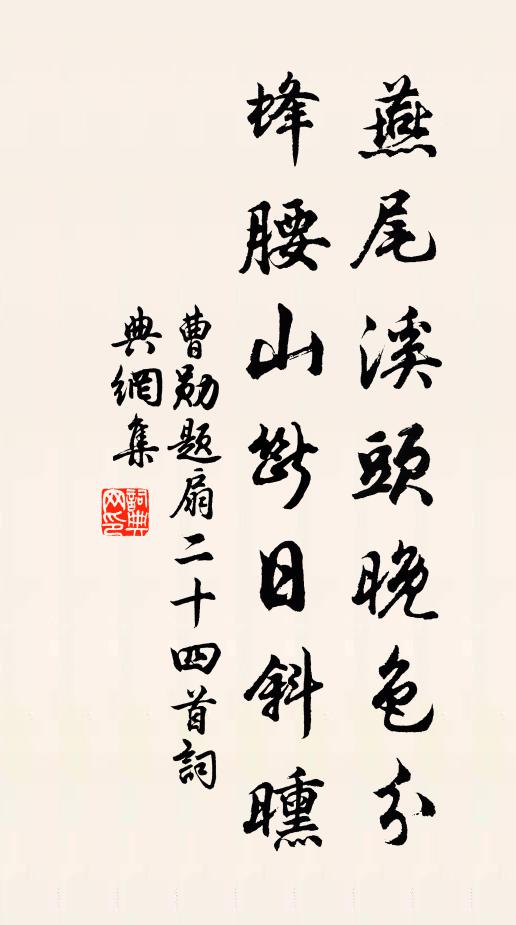 燕尾溪頭晚色分
蜂腰山斷日斜曛
曹勛題扇二十四首詞
典網集
詞典网印